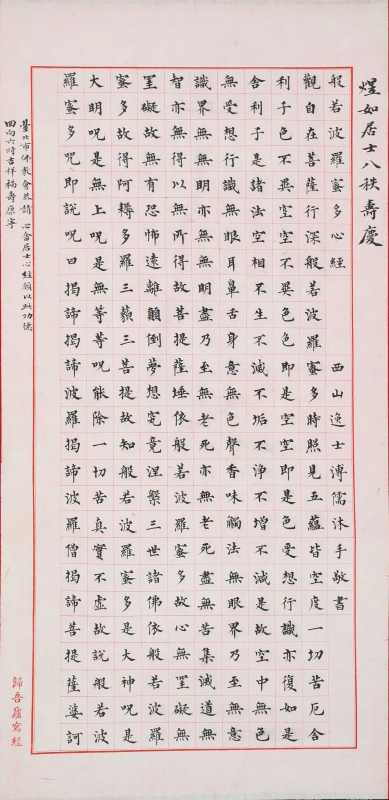 煜如居士八秩壽慶
般若波羅蜜多心經 西山逸士溥儒沐手敬書
觀自在菩薩行深般若波羅蜜多時照見五蘊皆空度一切苦厄舍
利子色不異空空不異色色即是空空即是色受想行識亦復如是
舍利子是諸法空相不生不滅不垢不淨不增不減是故空中無色
無受想行識無眼耳鼻舌身意無色聲香味觸法無眼界乃至無意
識界無無明亦無無明盡乃至無老死亦無老死盡無苦集滅道無
智亦無得以無所得故菩提薩埵依般若波羅蜜多故心無罣礙無
罣礙故無有恐怖遠離顛倒夢想究竟涅槃三世諸佛依般若波羅
蜜多故得阿耨多羅三藐三菩提故知般若波羅蜜多是大神呪是
大明呪是無上呪是無等等呪能除一切苦真實不虛故說般若波
羅蜜多呪即說呪曰揭諦揭諦波羅揭諦波羅僧揭諦菩提薩婆訶
臺北市佛教會恭請 心畬居士心經願以此功德
回向六時吉祥福壽康寧
歸吾廬寫經